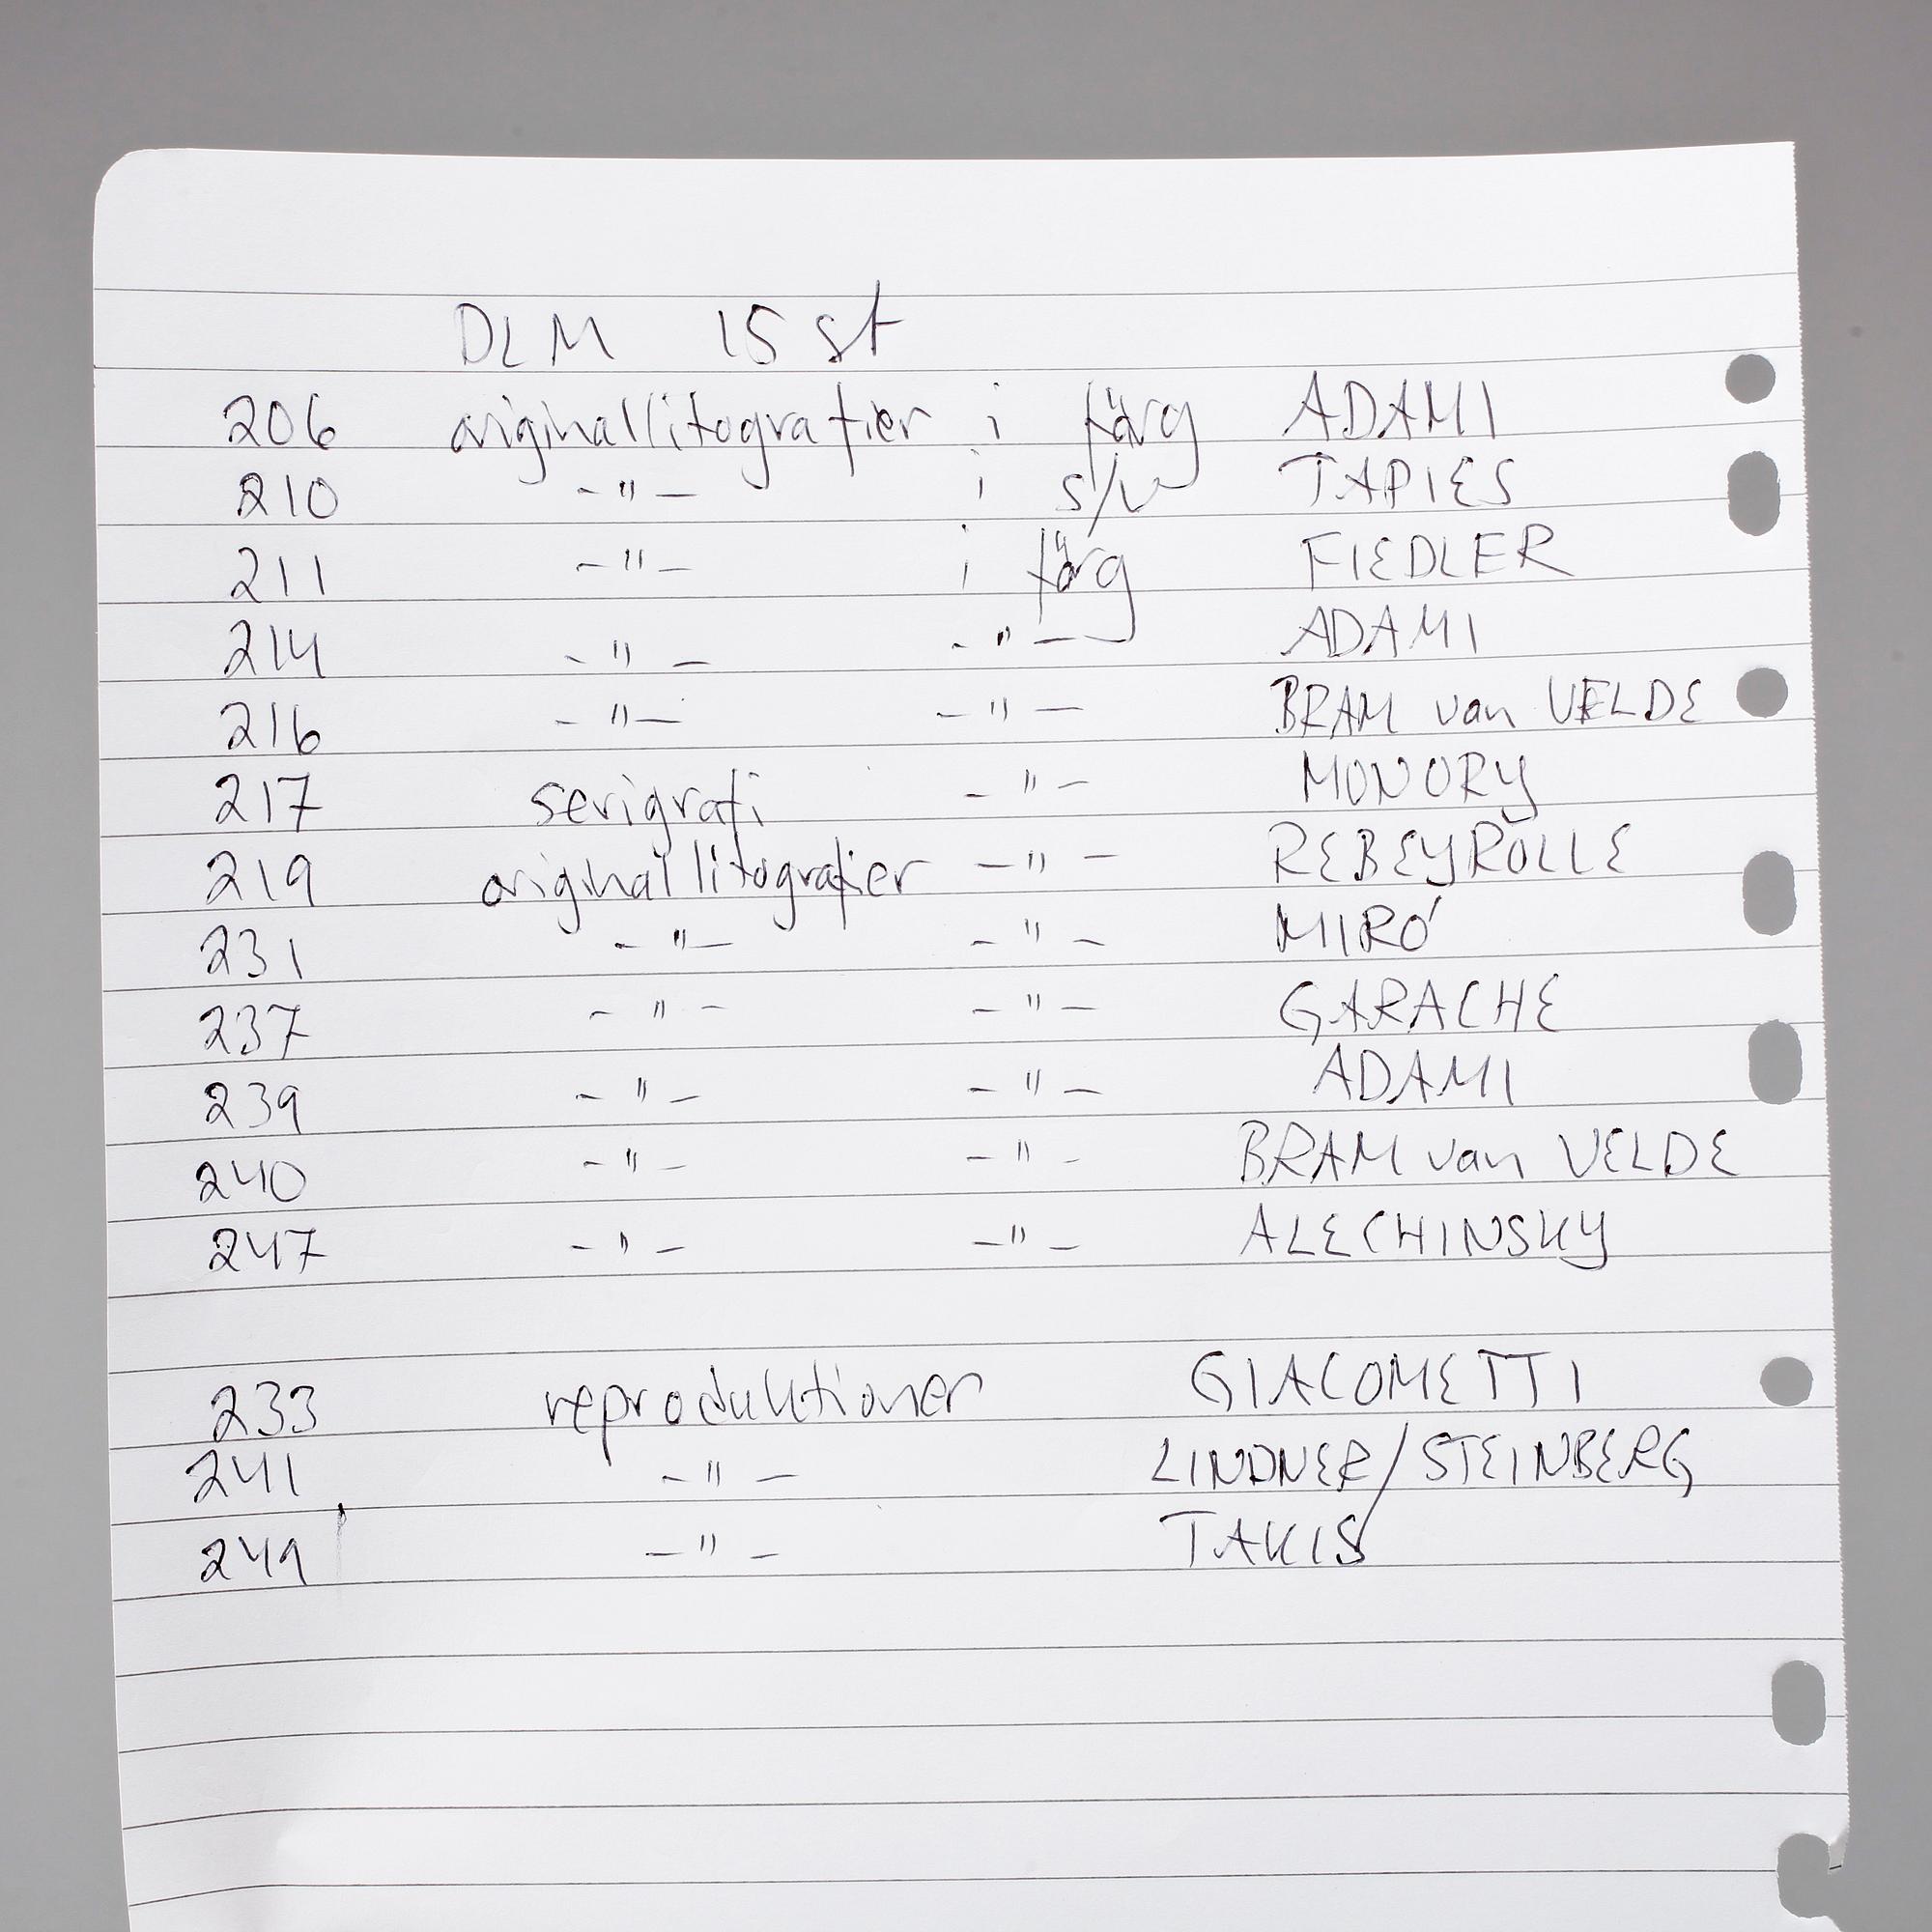 DLM 15 st
206 originallitografier i färg ADAMI
210 -"- i s/v TAPIES
211 -"- i färg FIEDLER
214 -"- -"- ADAMI
216 -"- -"- BRAM van VELDE
217 serigrafi -"- MONORY
219 originallitografier -"- REBEYROLLE
231 -"- -"- MIRÓ
237 -"- -"- GARACHE
239 -"- -"- ADAMI
240 -"- -"- BRAM van VELDE
247 -"- -"- ALECHINSKY
233 reproduktioner GIACOMETTI
241 -"- LINDNER/STEINBERG
249 -"- TAKIS